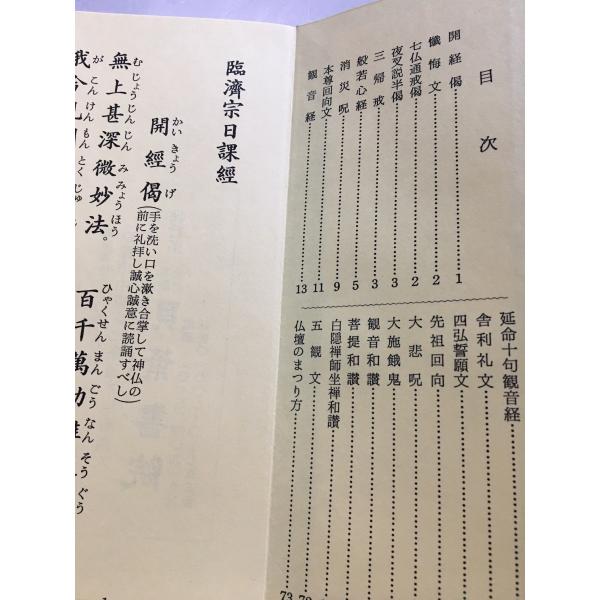 目次
開経偈 1
懺悔文 2
七仏通戒偈 2
夜叉説半偈 3
三帰戒 3
般若心経 5
消災呪 9
本尊回向文 11
観音経 13
延命十句観音経
舎利礼文
四弘誓願文
先祖回向
大悲呪
大施餓鬼
観音和讃
菩提和讃
白隠禅師坐禅和讃
五観文
仏壇のまつり方 73
臨濟宗日課經
開經偈(手を洗い口を漱き合掌して神仏の前に礼拝し誠心誠意に読誦すべし)
かいきょうげ
無上甚深微妙法。 百千萬劫
むじょうじんじんみみょうほう ひゃくせんまんごうなんそうぐう
我今見聞
がこんけんもんとくじゅ